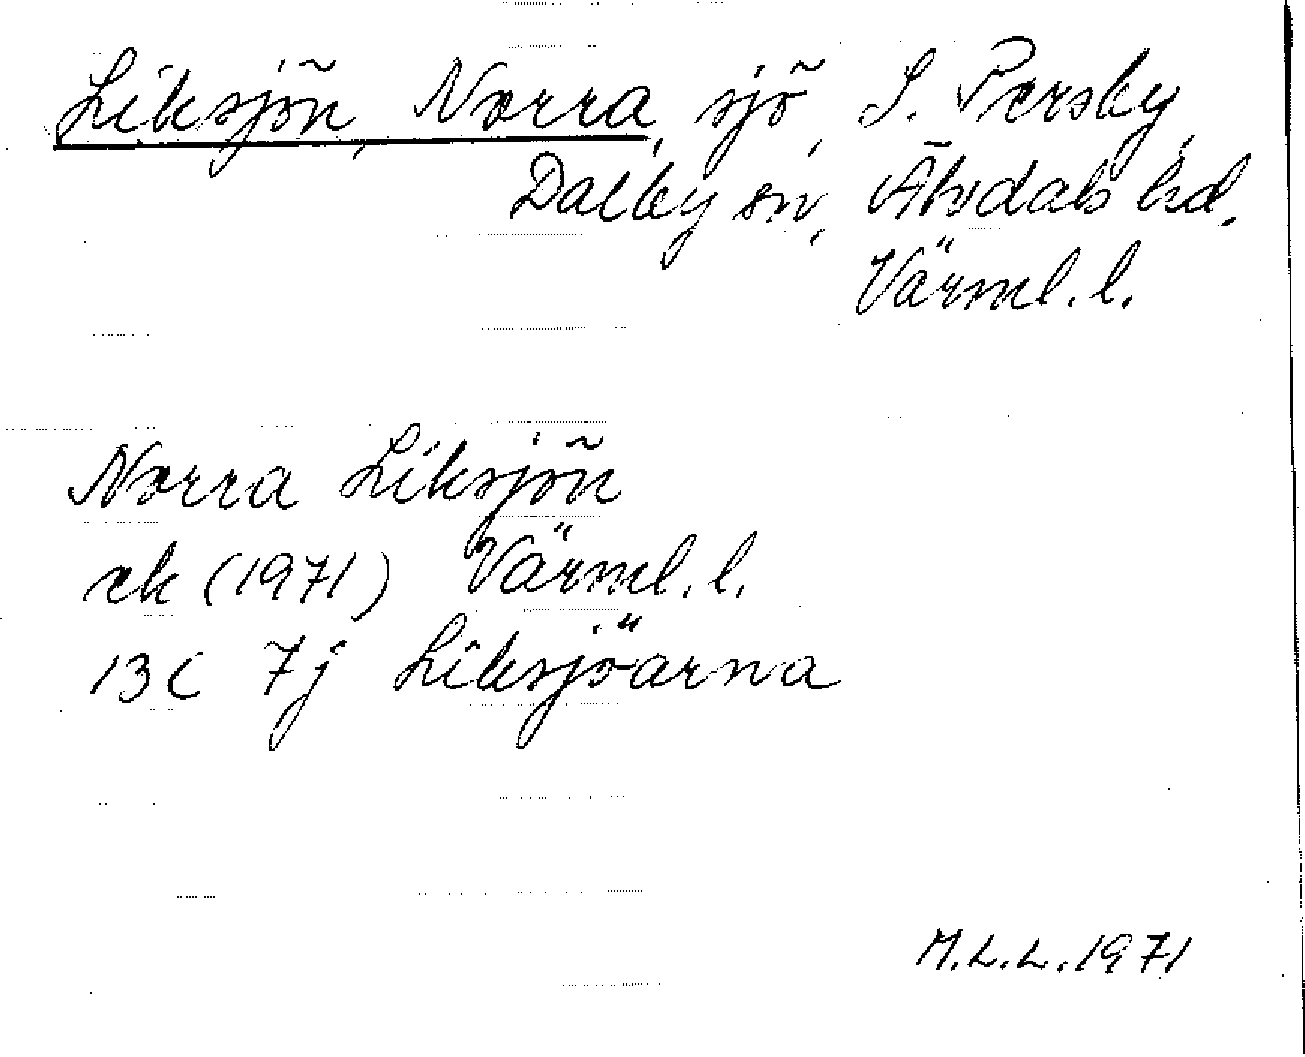 Liksjön, Norra, sjö, S. Persby,
Dalby sn, Älvdals hd,
Värml. l.
Norra Liksjön
ek (1971) Värml. l.
13C 7j Liksjöarna
M.L.L. 1971